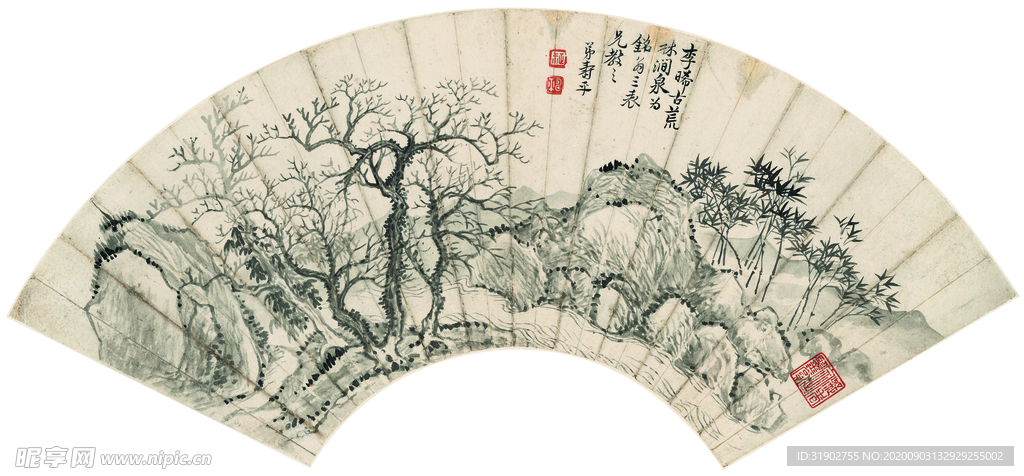 李晞古荒
林澗泉为
銘翁三表
兄教之
弟寿平
昵享网 www.nipic.cn
ID:31902755 NO:20200903132929255002